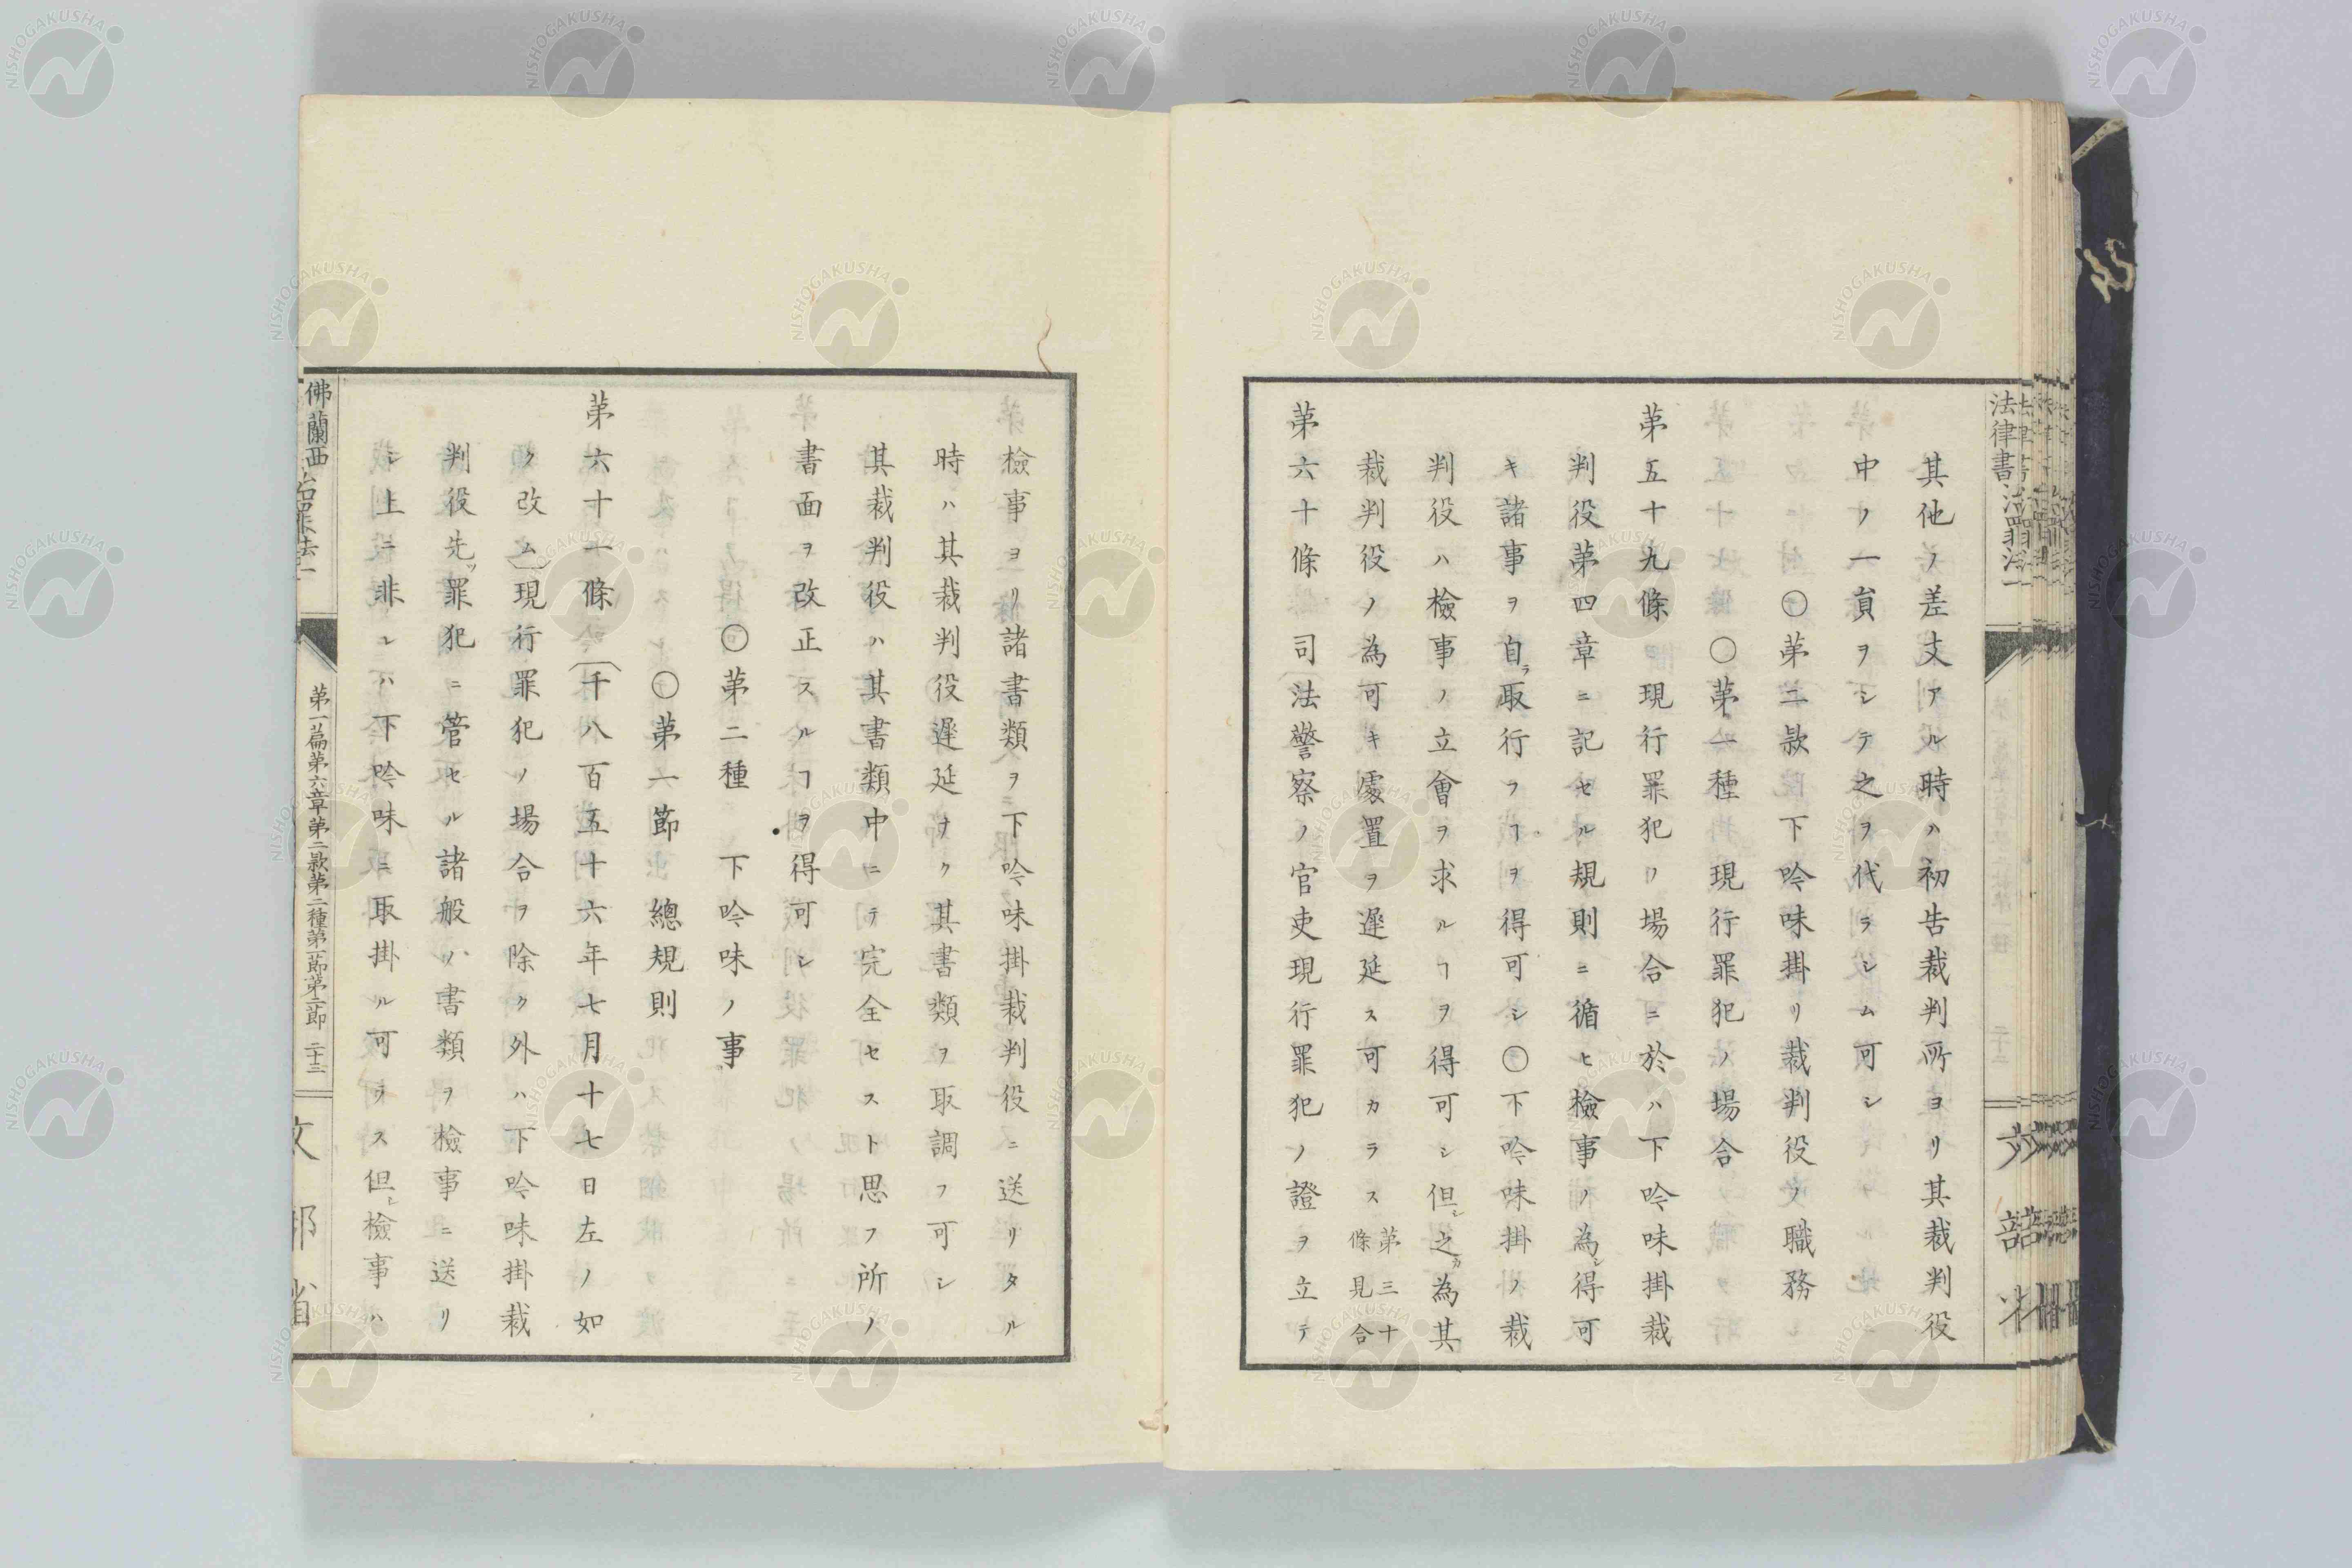 其他ノ差支アル時ハ初告裁判所ヨリ其裁判役
中ノ一員ヲシテ之ヲ代ラシム可シ
〇第二款　下吟味掛リ裁判役ノ職務
〇第一種　現行罪犯ノ場合
第五十九條　現行罪犯ノ場合ニ於ハ下吟味掛裁
判役第四章ニ記セル規則ニ循ヒ檢事ノ為シ得可
キ諸事ヲ自ラ取行フヿヲ得可シ〇下吟味掛ノ裁
判役ハ檢事ノ立會ヲ求ルヿヲ得可シ但シ之カ為其
裁判役ノ為可キ處置ヲ遲延ス可カラス第三十條見合
第六十條　司法警察ノ官吏現行罪犯ノ證ヲ立テ
檢事ヨリ諸書類ヲ下吟味掛裁判役ニ送リタル
時ハ其裁判役遲延ナク其書類ヲ取調フ可シ
其裁判役ハ其書類中ニテ完全セスト思フ所ノ
書面ヲ改正スルヿヲ得可シ
〇第二種　下吟味ノ事
〇第一節　總規則
第六十一條（千八百五十六年七月十七日左ノ如
ク改ム）現行罪犯ノ場合ヲ除ク外ハ下吟味掛裁
判役先ツ罪犯ニ管セル諸般ノ書類ヲ檢事ニ送リ
シ上ニ非レハ下吟味ニ取掛ル可ラス但シ檢事ハ
佛蘭西治罪法一
第一篇第六章第二款第二種第一節第二節　二十三
文部省
法律書
NISHOGAKUSHA